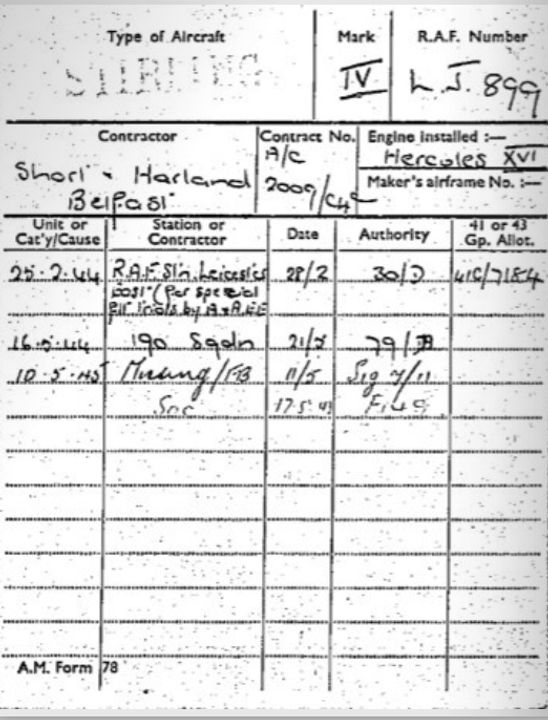 Type of Aircraft
Mark
R.A.F. Number
STIRLING
IV
LJ.899
Contractor
Contract No.
Engine installed :—
Short & Harland
A/C
Hercules XVI
Belfast
2009/C4C
Maker's airframe No. :—
Unit or
Cat'y/Cause
Station or
Contractor
Date
Authority
41 or 43
Gp. Allot.
25.2.44
R.A.F. Stn. Leicester
28/2
30/D
41G/7184
East (For special
trials by A & AEE
190 Sqdn
79/
10.5.45
Missing/FB
11/5
Soc
A.M. Form 78